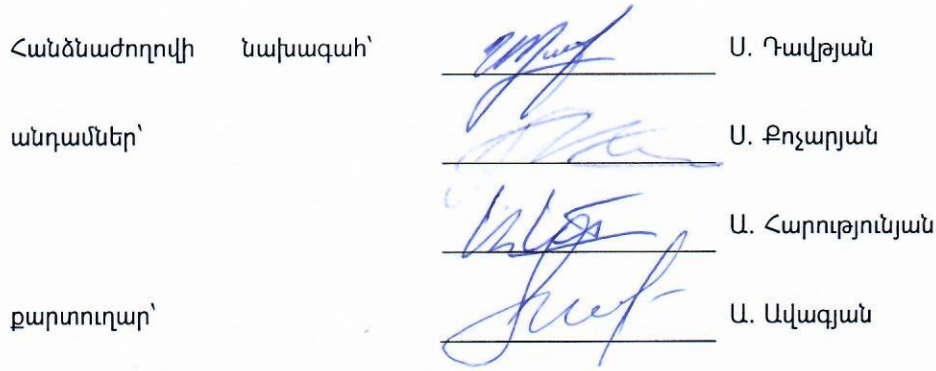 Հանձնաժողովի նախագահ՝ Ս. Դավթյան
անդամներ՝ Ս. Քոչարյան
Ա. Հարությունյան
քարտուղար՝ Ա. Ավագյան